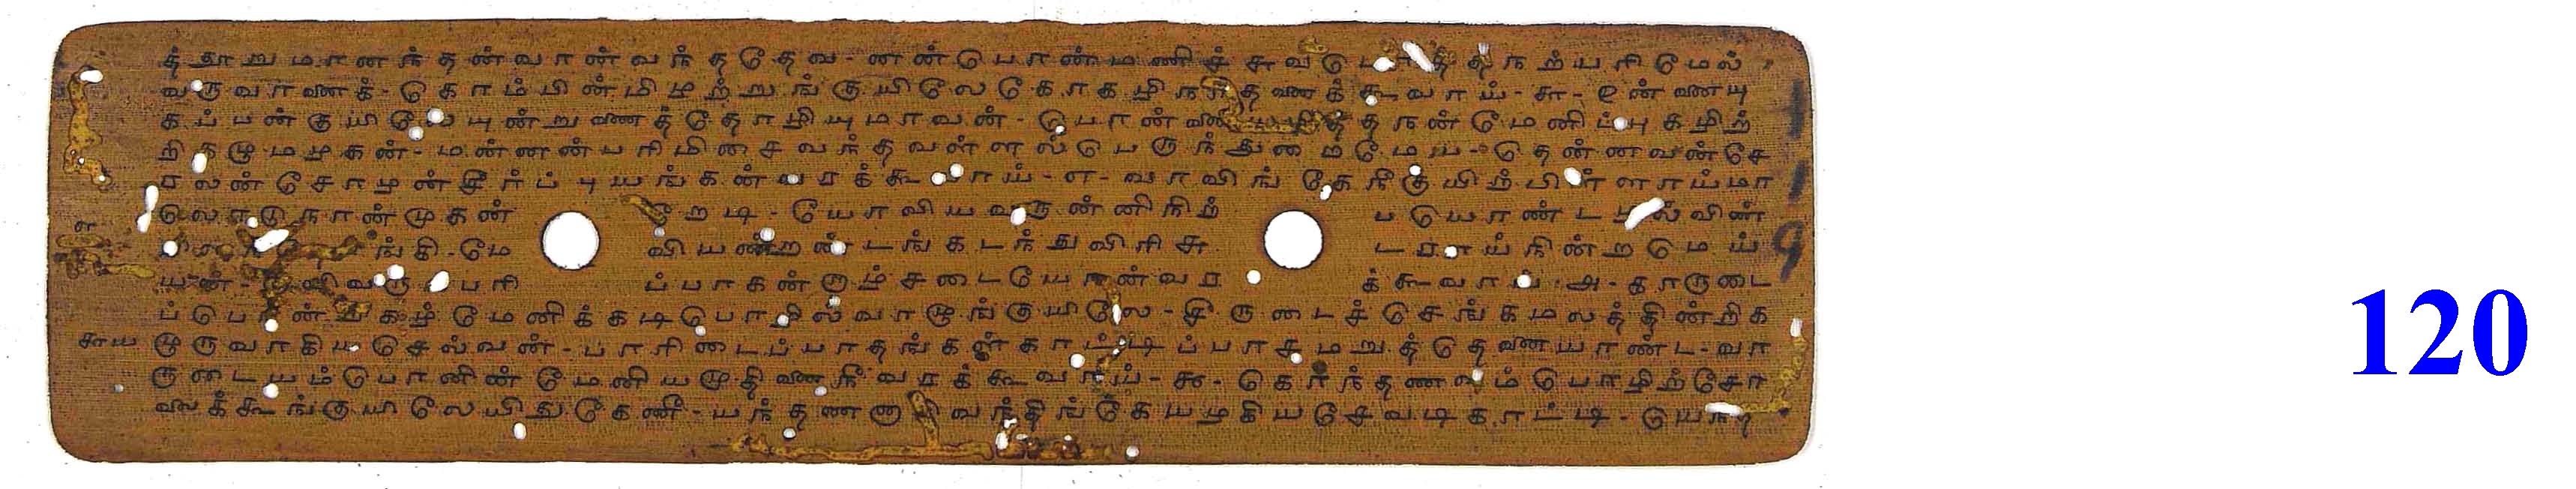 த்தூறுமானந்தன்வான்வந்ததேவ-னன்பொன்மணிச்சுவடொத்தநற்பரிமேல்
வருவானைக்-கொம்பின்மிழற்றுங்குயிலேகோகழிநாதனைக்கூவாய்-௬-உன்னையு
கப்பன்குயிலேயுன்றுணைத்தோழியுமாவன்-பொன்னையழித்தநன்மேனிப்புகழிற்
றிகழுமழகன்-மன்னன்பரிமிசைவந்தவள்ளல்பெருந்துறைமேய-தென்னவன்சே
ரலன்சோழன்சீர்ப்புயங்கன்வரக்கூவாய்-௭-வாவிங்கேநீகுயிற்பிள்ளாய்மா
லொடுநான்முகன் றேடி-யோவியவருன்னிநிற் பவொண்டழல்விண்
ங்கி-மே வியன்றண்டங்கடந்துவிரிசு டராய்நின்றமெய்
யன்-தாவிவரும்பரி ப்பாகன்றாழ்சடையோன்வர க்கூவாய்-௮-காருடை
ப்பொன்திகழ்மேனிக்கடிபொழில்வாழுங்குயிலே-சீருடைச்செங்கமலத்தின்றிக
ழுருவாகியசெல்வன்-பாரிடைப்பாதங்கள்காட்டிப்பாசமறுத்தெனையாண்ட-வா
ருடையம்பொனின்மேனியமுதினைநீவரக்கூவாய்-௯-கொந்தணவும்பொழிற்சோ
லைக்கூங்குயிலேயிதுகேணீ-யந்தணனாகிவந்திங்கேயழகியசேவடிகாட்டி-யெந்த
120